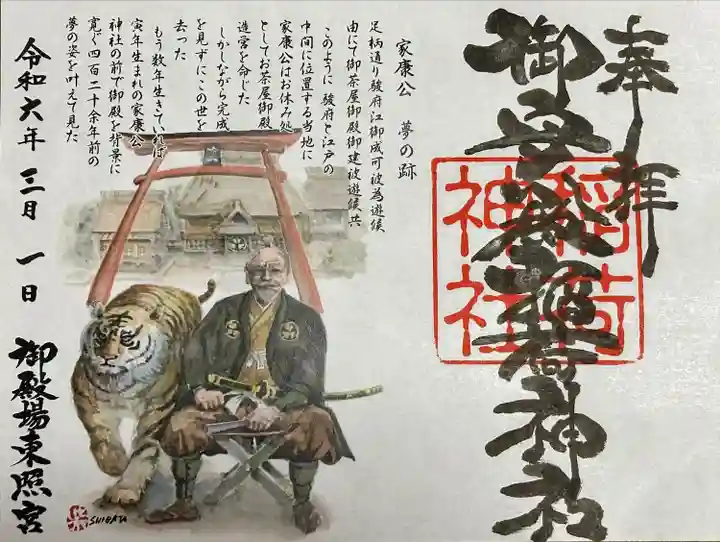 奉拝
御殿場稲荷神社
稲荷
神社
家康公 夢の跡
足柄通り駿府江御成可被為遊候
由にて御茶屋御殿御建被遊候共
このように駿府と江戸の
中間に位置する当地に
家康公はお休み処
としてお茶屋御殿
造営を命じた
しかしながら完成
を見ずにこの世を
去った
もう数年生きていれば
寅年生まれの家康公
神社の前で御殿を背景に
寛ぐ四百二十余年前の
夢の姿を叶えて見た
令和六年 三月 一日
御殿場東照宮
SHIBATA